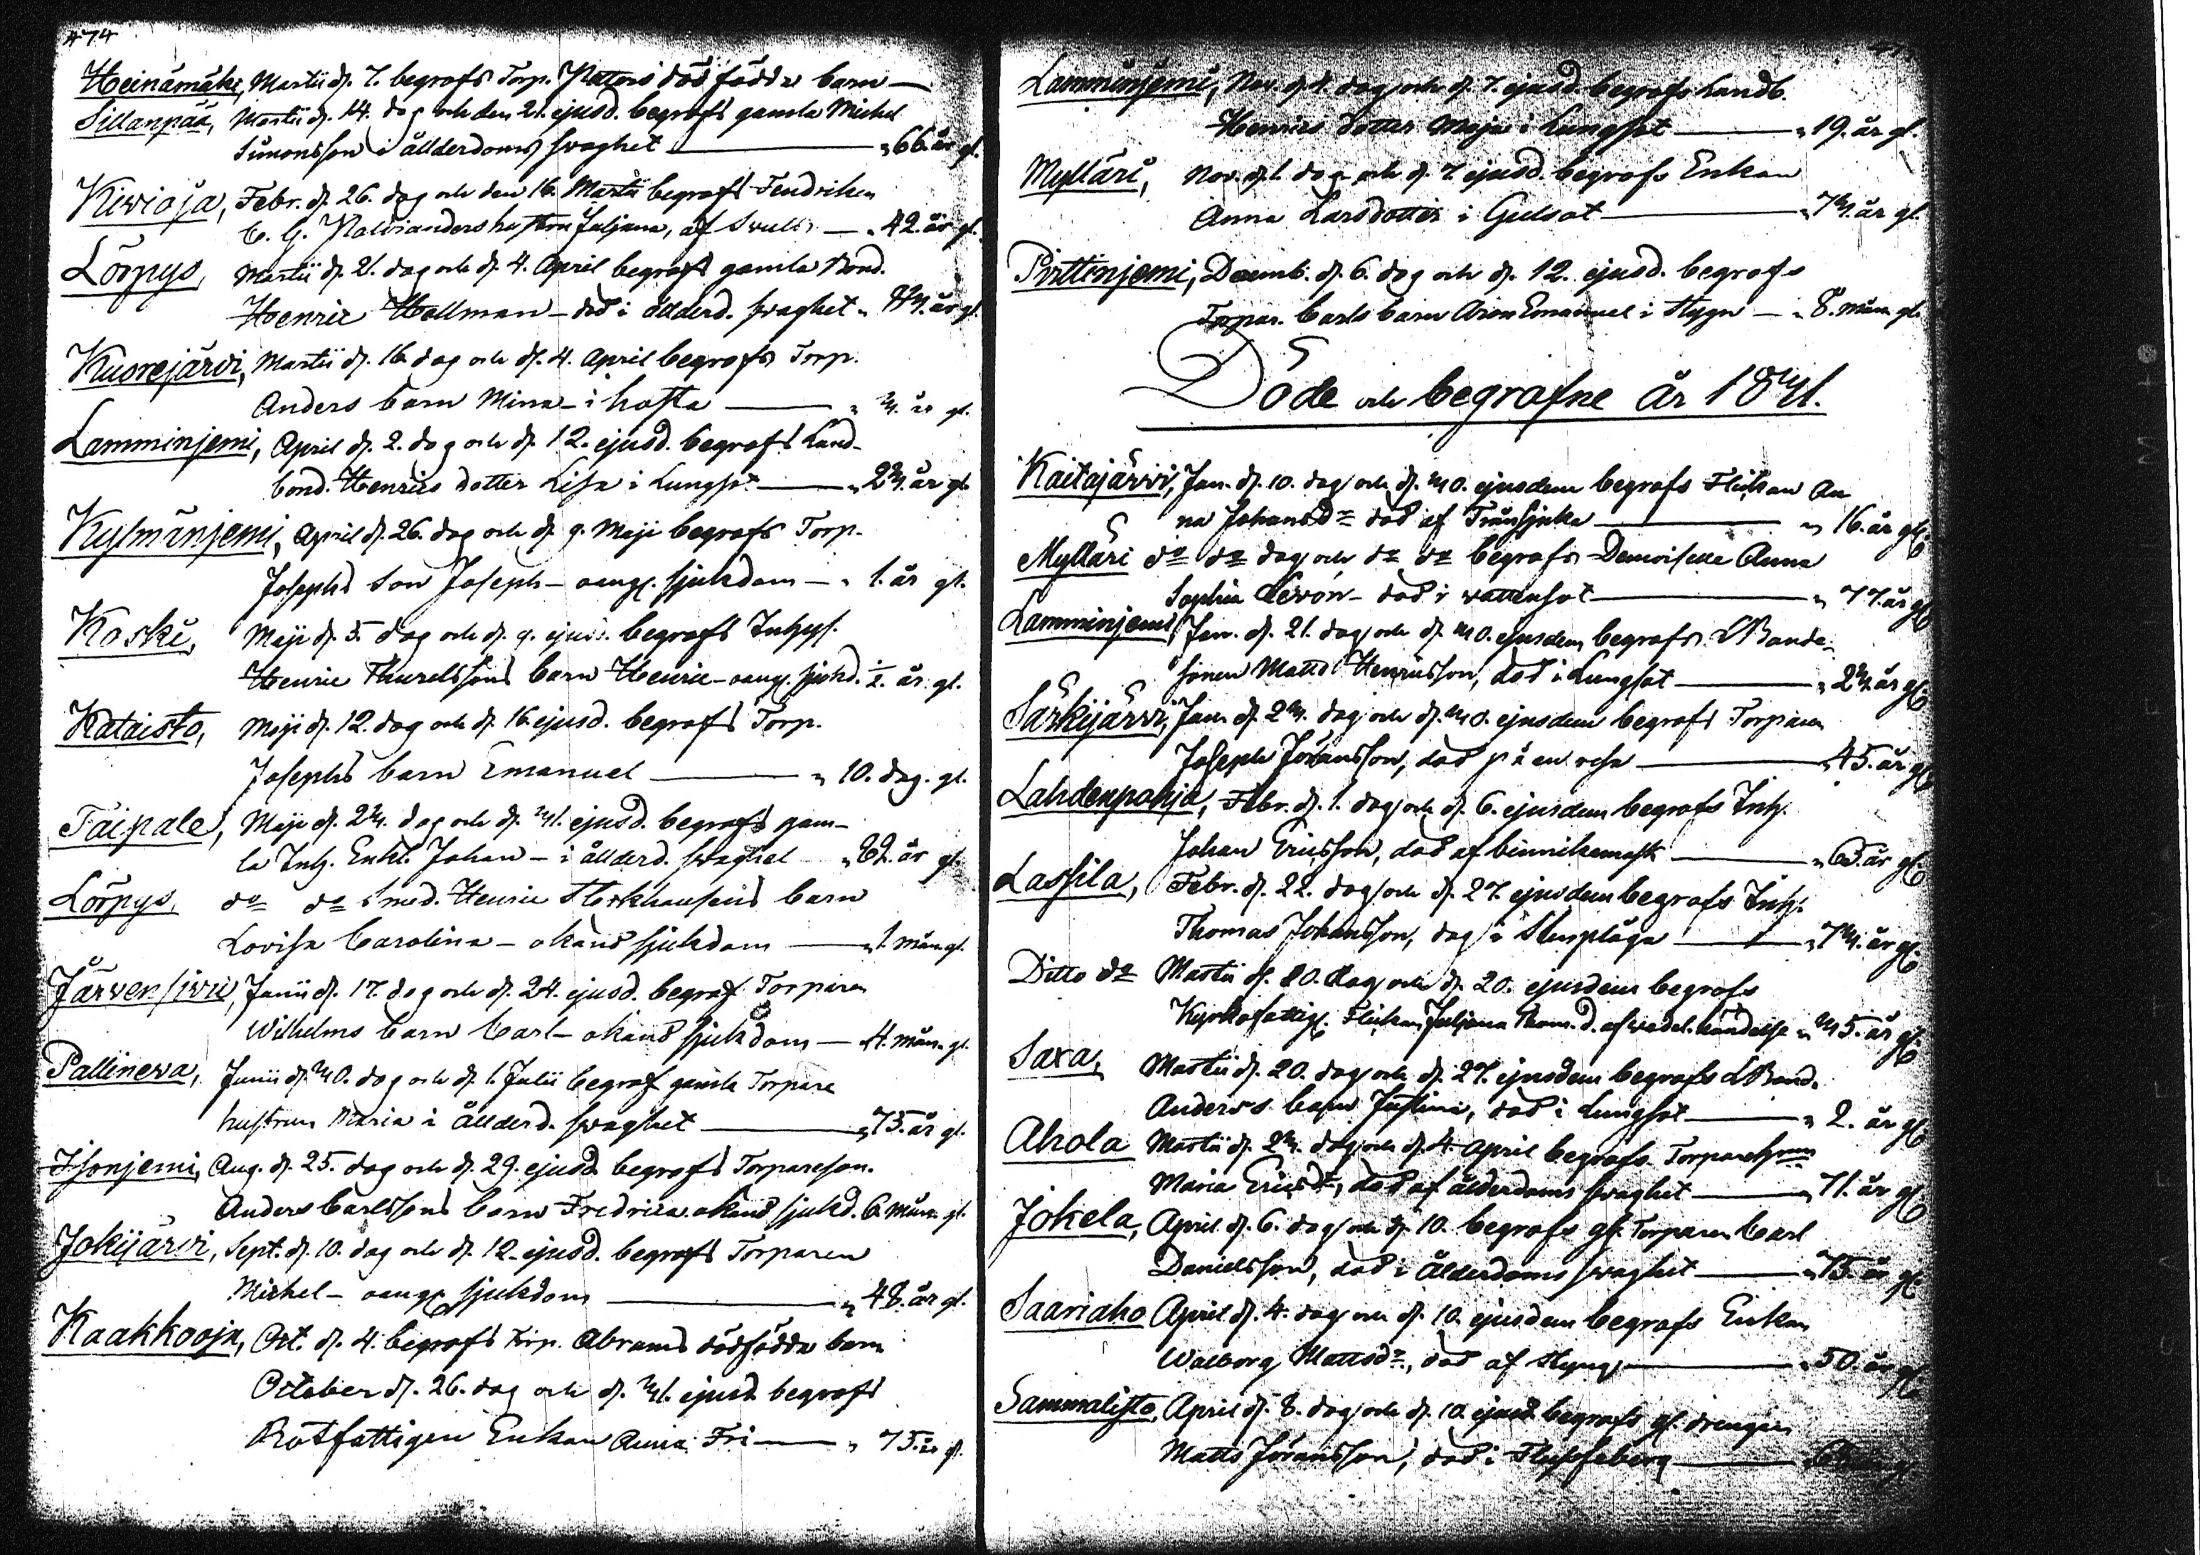 474
Heinämäki, Martii d. 7. begrofs Torp. död födda barn —
Sillanpää, Martii d. 14. dog och den 21. ejusd. begrofs gamla Michel
Simonsson i ållderdoms swaghet — " 66. år gl.
Kiwioja, Febr. d. 26. dog och den 16. Martii begrofs Fendriken
C. G. hustru Juljana, af — " 42. år gl.
Lörpys, Martii d. 21. dog och d. 4. April begrofs gamla Bond.
Henric Hallman — död i ållderd. swaghet " år gl.
Kuorejärvi, Martii d. 16. dog och d. 4. April begrofs Torp.
Anders barn Mina — i hosta — " 3. år gl.
Lamminjemi, April d. 2. dog och d. 12. ejusd. begrofs Land-
bond. Henrics dotter Lisa i Lungsot — " 23. år gl.
Kylmänjemi, April d. 26. dog och d. 9. Maji begrofs Torp.
Josephs son Joseph — oang. sjukdom — " 1. år gl.
Koski, Maji d. 5. dog och d. 9. ejusd. begrofs Inhys.
Henric Thurelssons barn Henric — oang. sjukd. ½. år gl.
Kataisto, Maji d. 12. dog och d. 16. ejusd. begrofs Torp.
Josephs barn Emanuel — " 10. dag. gl.
Taipale, Maji d. 23. dog och d. 31. ejusd. begrofs gam-
la Inh. Enkl. Johan — i ållderd. swaghet " 82. år gl.
Lörpys, do do Smed. Henric barn
Lovisa Carolina — okänd sjukdom — " 1. mån gl.
Järvensivu, Junii d. 17. dog och d. 24. ejusd. begrof Torparen
Wilhelms barn Carl — okänd sjukdom — 4. mån. gl.
Pallinewa, Junii d. 30. dog och d. 1. Julii begrof gamla Torpare
hustrun Maria i ållderd. swaghet — " 75. år gl.
Isonjemi, Aug. d. 25. dog och d. 29. ejusd. begrofs Torpareson.
Anders Carlssons barn Fredrica okänd sjukd. 6. mån. gl.
Jokijärvi, Sept. d. 10. dog och d. 12. ejusd. begrofs Torparen
Michel — oang. sjukdom — " 48. år gl.
Kaakkooja, Oct. d. 4. begrofs Torp. Abrams dödfödda barn
October d. 26. dog och d. 31. ejusd. begrofs
Rotfattigen Enkan Anna Fri — " 75. år gl.
Lamminjemi, Nov. d. 4. dog och d. 7. ejusd. begrofs Landb.
Henrics dotter Maja i Lungsot — " 19. år gl.
Mylläri, Nov. d. 1. dog och d. 7. ejusd. begrofs Enkan
Anna Larsdotter i Gulsot — " 73. år gl.
Pirttinjemi, Decemb. d. 6. dog och d. 12. ejusd. begrofs
Torpar. Carls barn Emanuel i Stygn — " 8. mån gl.
Döde och begrafne år 1831.
Kaitajärwi, Jan. d. 10. dog och d. 30. ejusdem begrofs Flickan An
na Johansdr död af Trånsjuka — " 16. år gl.
Myllari do do dog och do do begrofs Demoiselle Anna
Sophia Levón — död i wattensot — " 77. år gl.
Lamminjemi, Jan. d. 21. dog och d. 30. ejusdem begrofs LBonde-
sonen Matts Henricsson, död i Lungsot — " 23. år gl.
Särkijärvi, Jan. d. 23. dog och d. 30. ejusdem begrofs Torparen
Joseph Jöransson, död på en resa — " 45. år gl.
Lahdenpohja, Febr. d. 1. dog och d. 6. ejusdem begrofs Inh.
Johan Ericsson, död af binnikemask — " 65. år gl.
Lassila, Febr. d. 22. dog och d. 27. ejusdem begrofs Inh.
Thomas Johansson, dog i Stenplåga — " 73. år gl.
Ditto do Martii d. 10. dog och d. 20. ejusdem begrofs
Kyrkofattig. Flickan Juljana Thom. d. af wådel. händelse " 35. år gl.
Saxa, Martii d. 20. dog och d. 27. ejusdem begrofs LBond.
Anders's barn Justina, död i Lungsot — " 2. år gl.
Ahola Martii d. 23. dog och d. 4. April begrofs Torparehrun
Maria Ericsdr, död af ålderdoms swaghet — " 71. år gl.
Jokela, April d. 6. dog och d. 10. begrofs gl. Torparen Carl
Danielsson, död i Ålderdoms swaghet — " 75. år gl.
Saariaho April d. 4. dog och d. 10. ejusdem begrofs Enkan
Walborg Mattsdr, död af Styng — " 50. år gl.
Sammalisto, April d. 8. dog och d. 10. ejusd. begrofs gl. drengen
Matts Jöransson, död i —